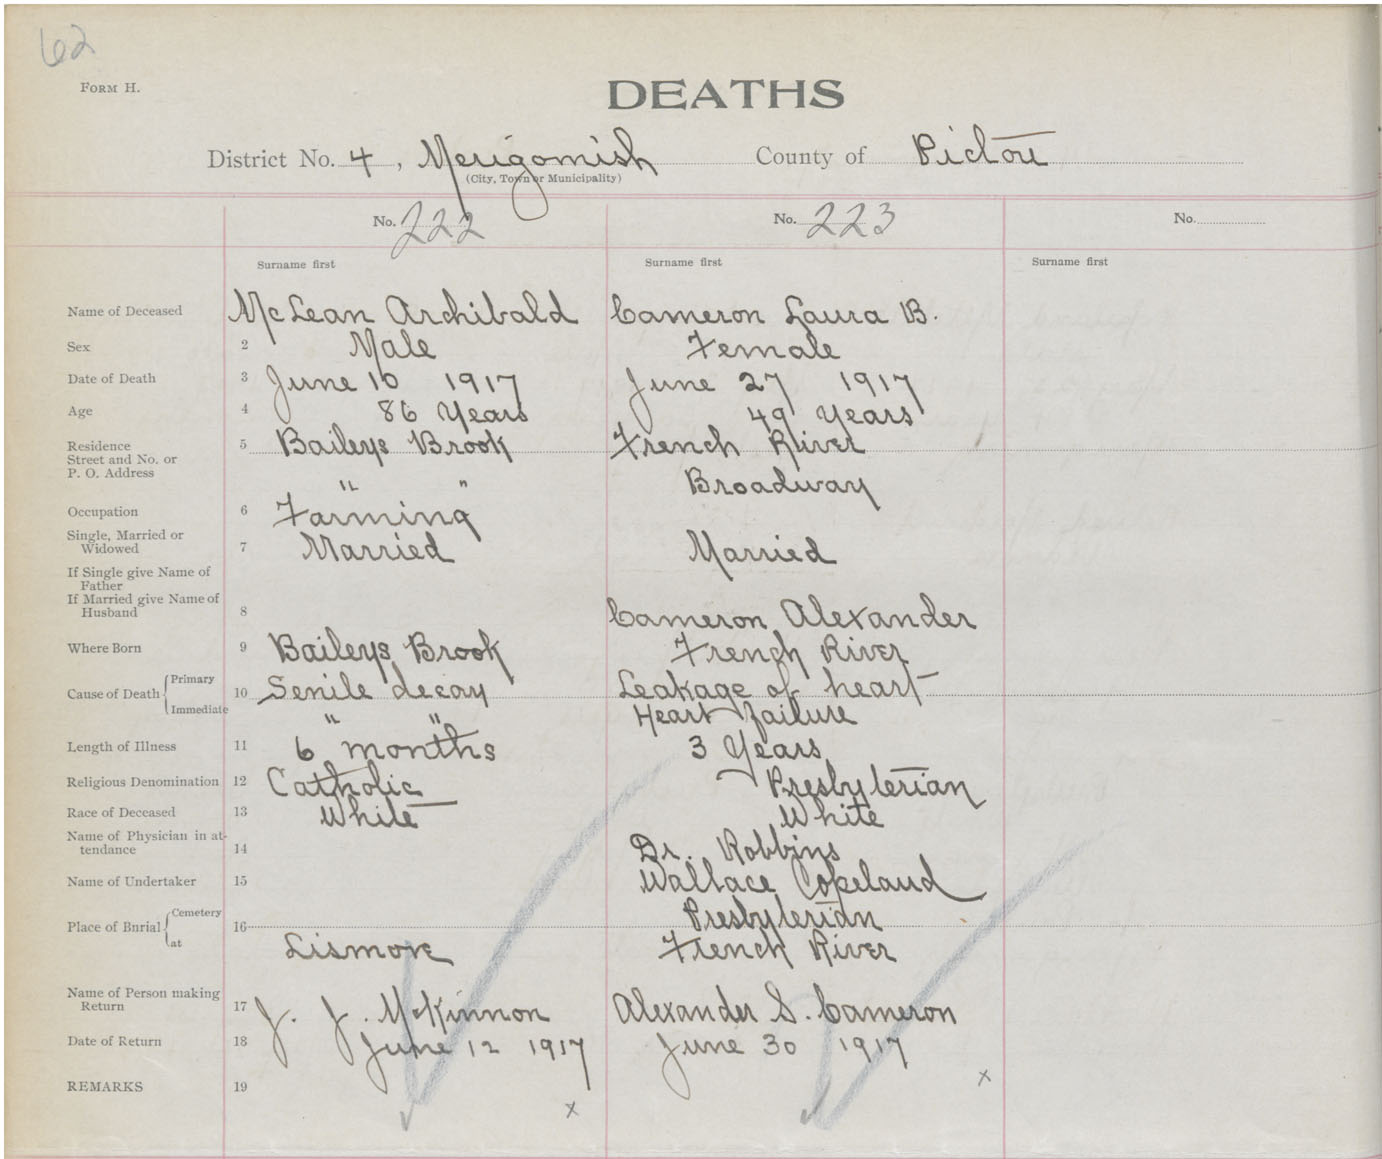 62
FORM H.
DEATHS
District No. 4, Merigomish County of Pictou
(City, Town or Municipality)
No. 222 No. 223 No.
Surname first Surname first Surname first
Name of Deceased McLean Archibald Cameron Laura B.
Sex 2 Male Female
Date of Death 3 June 10 1917 June 27 1917
Age 4 86 Years 49 Years
Residence 5 Baileys Brook French River
Street and No. or
P. O. Address " " Broadway
Occupation 6 Farming
Single, Married or
Widowed 7 Married Married
If Single give Name of
Father
If Married give Name of
Husband 8 Cameron Alexander
Where Born 9 Baileys Brook French River
Cause of Death Primary 10 Senile decay Leakage of heart
Immediate " " Heart failure
Length of Illness 11 6 months 3 Years
Religious Denomination 12 Catholic Presbyterian
Race of Deceased 13 White White
Name of Physician in at-
tendance 14 Dr. Robbins
Name of Undertaker 15 Wallace Copeland
Place of Burial Cemetery 16 Presbyterian
at Lismore French River
Name of Person making
Return 17 J. J. McKinnon Alexander S. Cameron
Date of Return 18 June 12 1917 June 30 1917
REMARKS 19
x x